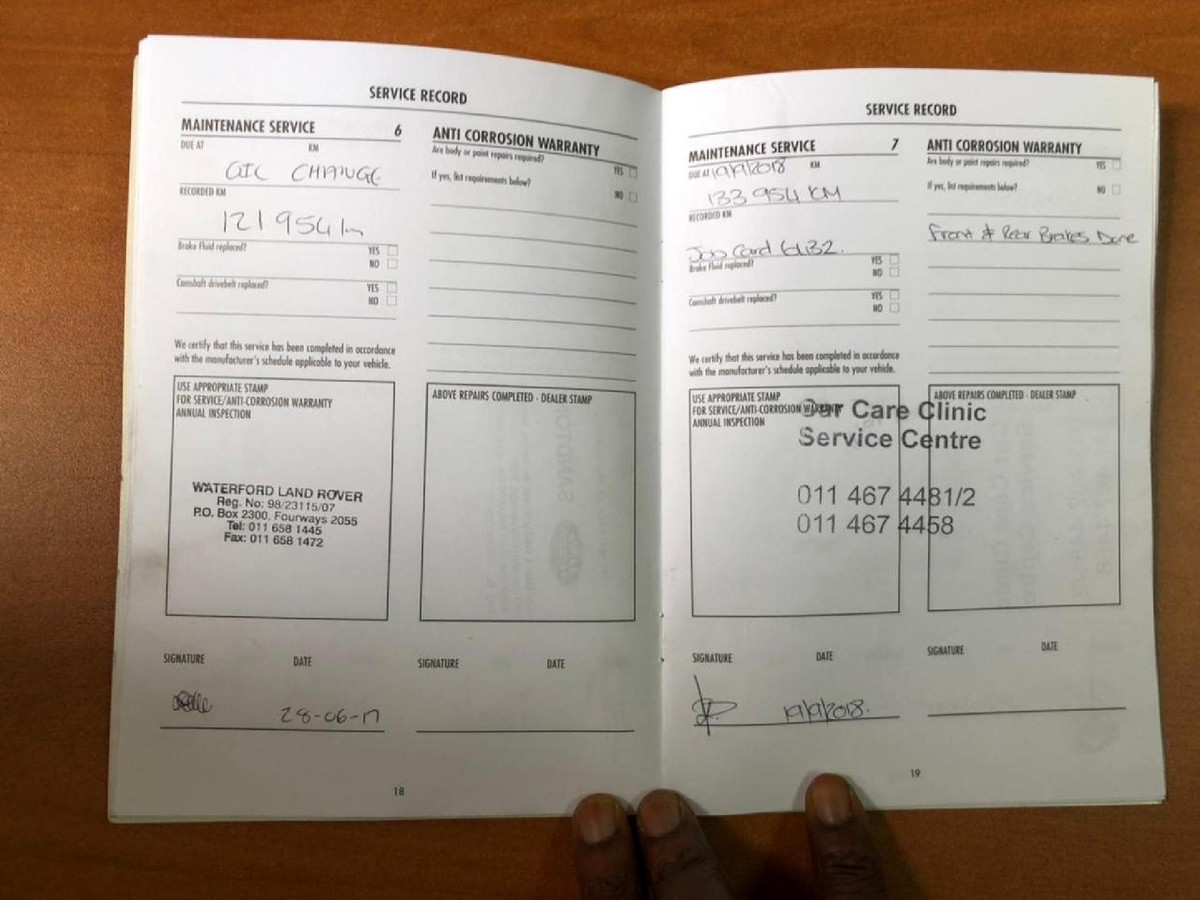 SERVICE RECORD
MAINTENANCE SERVICE 6
DUE AT KM
OIL CHANGE
RECORDED KM
121 954 km
Brake Fluid replaced? YES
NO
Camshaft drivebelt replaced? YES
NO
We certify that this service has been completed in accordance
with the manufacturer's schedule applicable to your vehicle.
USE APPROPRIATE STAMP
FOR SERVICE/ANTI-CORROSION WARRANTY
ANNUAL INSPECTION
WATERFORD LAND ROVER
Reg. No: 98/23115/07
P.O. Box 2300, Fourways 2055
Tel: 011 658 1445
Fax: 011 658 1472
SIGNATURE DATE
28-06-17
ANTI CORROSION WARRANTY
Are body or paint repairs required? YES
If yes, list requirements below? NO
ABOVE REPAIRS COMPLETED - DEALER STAMP
SIGNATURE DATE
18
SERVICE RECORD
MAINTENANCE SERVICE 7
DUE AT 19/9/2018 KM
133 954 KM
RECORDED KM
Job Card 6132.
Brake Fluid replaced? YES
NO
Camshaft drivebelt replaced? YES
NO
We certify that this service has been completed in accordance
with the manufacturer's schedule applicable to your vehicle.
USE APPROPRIATE STAMP
FOR SERVICE/ANTI-CORROSION WARRANTY
ANNUAL INSPECTION
Car Care Clinic
Service Centre
011 467 4481/2
011 467 4458
SIGNATURE DATE
19/9/2018.
ANTI CORROSION WARRANTY
Are body or paint repairs required? YES
If yes, list requirements below? NO
Front & Rear Brakes Done
ABOVE REPAIRS COMPLETED - DEALER STAMP
SIGNATURE DATE
19